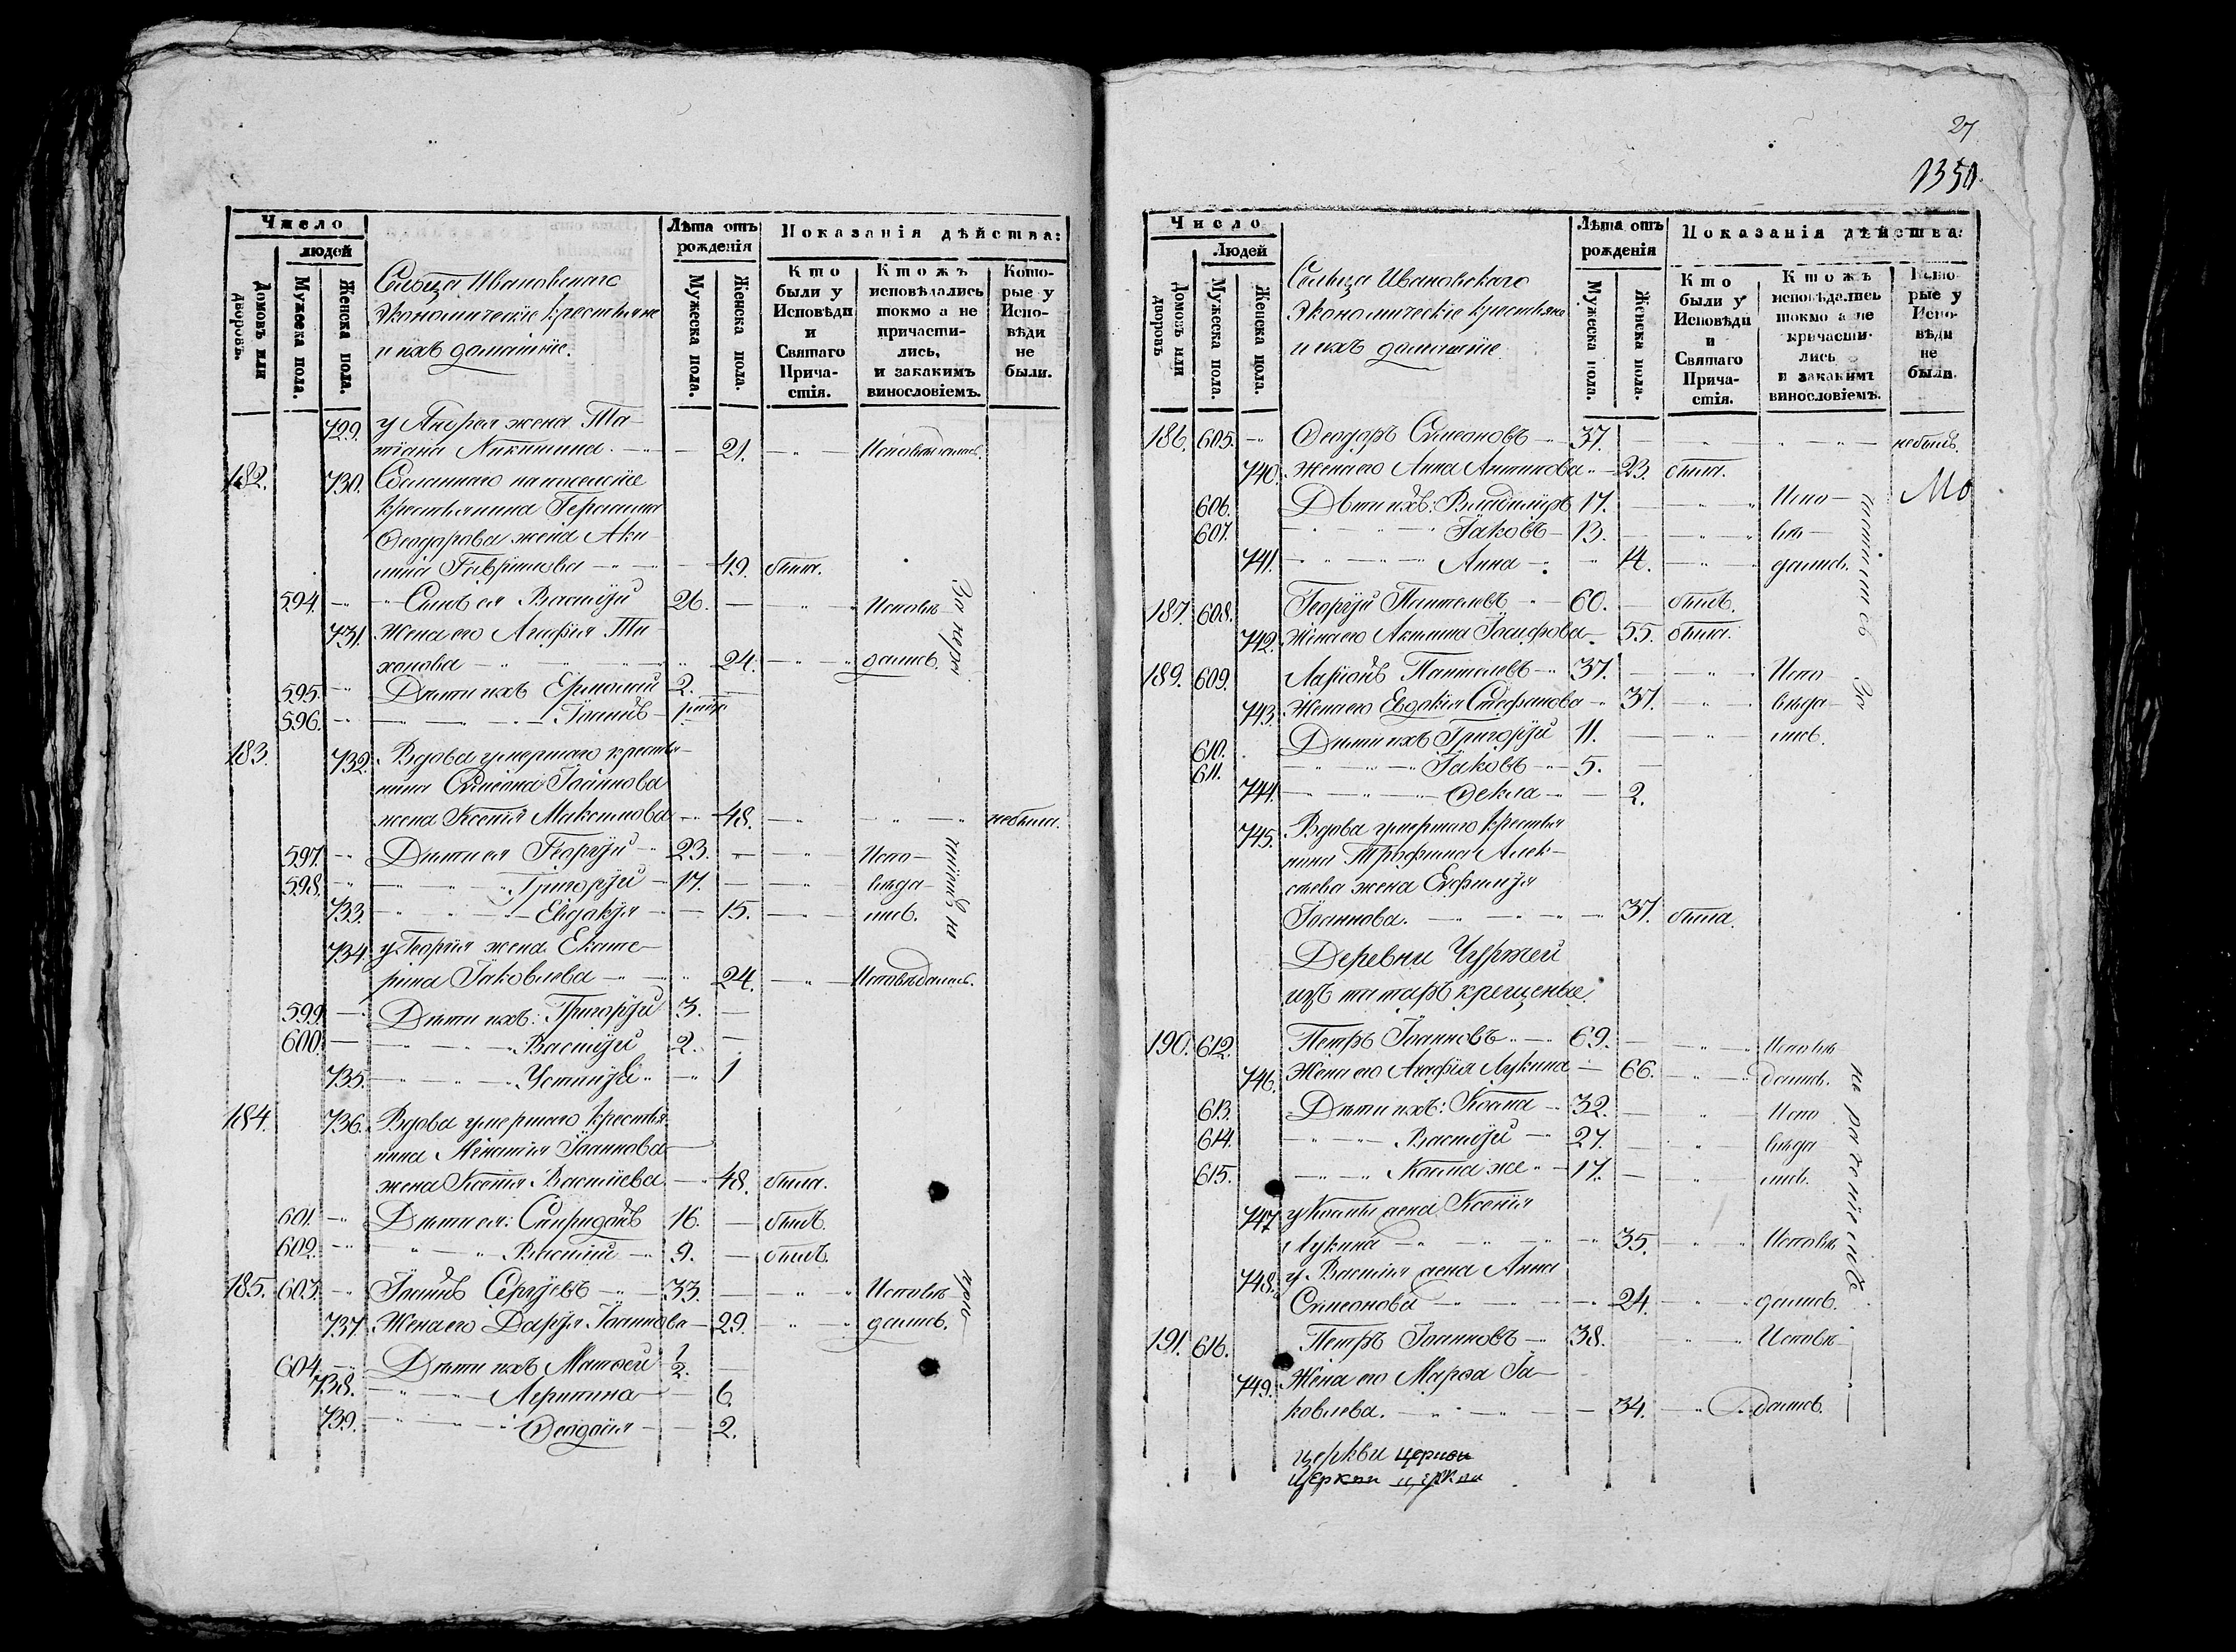 Число
людей
Домовъ или дворовъ.
Мужеска пола.
Женска пола.
Сельца Ивановскаго
Экономическіе крестьяне
и ихъ домашніе.
Лѣта отъ рожденія
Мужеска пола.
Женска пола.
Показанія дѣйства:
Кто были у Исповѣди и Святаго Причастія.
Ктожъ исповѣдались токмо а не причастились, и закакимъ винословіемъ.
Которые у Исповѣди не были.
729. у Андрея жена Та-
тіана Никитина. 21.
182. 730. Сосланнаго на поселеніе
крестьянина
Ѳеодорова жена Аки-
лина Гаврилова 49. была.
594. Сынъ ея Василій 26. Исповѣ-
731. Жена его Агафія Ти-
хонова 24. дались.
595. Дѣти ихъ Ермолай 2.
596. Іоаннъ
183. 732. Вдова умершаго крестья-
нина Симеона Іоаннова
жена Ксенія Максимова 48. небыла.
597. Дѣти ея Георгій 23. Испо-
598. Григорій 17. вѣда-
733. Евдакія 15. лись.
734. у Георгія жена Екате-
рина Іаковлева 24. Исповѣдалась.
599. Дѣти ихъ: Григорій 3.
600. Василій 2.
735. 1
184. 736. Вдова умершаго крестья-
нина Игнатія Іоаннова
жена Ксенія Васильева 48. была.
601. Дѣти ея: Спиридонъ 16. былъ.
602. Василій 9. былъ.
185. 603. Іоаннъ Сергѣевъ 33. Исповѣ-
737. Жена его Дарія Іоаннова 29. дались.
604. Дѣти ихъ Матѳей 1/2.
738. Агрипина 6
739. Ѳеодосія 2.
27
1350.
Число
Людей
Домовъ или дворовъ
Мужеска пола.
Женска пола.
Сельца Ивановскаго
Экономическіе крестьяне
и ихъ домашніе.
Лѣта отъ рожденія
Мужеска пола.
Женска пола.
Показанія дѣйства:
Кто были у Исповѣди и Святаго Причастія.
Ктожъ исповѣдались токмо а не причастились и закакимъ винословіемъ.
Которые у Исповѣди не были.
186. 605. Ѳеодоръ Симеоновъ 37. небылъ.
740. Жена его Анна Антипова 23. была.
606. Дѣти ихъ: Владимиръ 17. Испо-
607. Іаковъ 13. вѣ-
741. Анна 14. дались.
187. 608. Георгій Пантелевъ 60. былъ.
742. Жена его Акилина Іосифова 55. была.
189. 609. Ларіонъ Пантелевъ 37. Испо
743. Жена его Евдокія Стефанова 37. вѣда-
610. Дѣти ихъ Григорій 11. лись.
611. Іаковъ 5.
744. Ѳекла 2.
745. Вдова умершаго крестья-
нина Трофима Алек-
сѣева жена Евфимія
Іоаннова. 37. была.
Деревни
изъ татаръ крещеные.
190. 612. Петръ Іоанновъ 69. Исповѣ
746. Жена его Агафія Лукина 66. дались.
613. Дѣти ихъ: Косма 32. Испо
614. Василій 27. вѣда
615. Косма же 17. лись.
747. у Космы жена Ксенія
Лукина 35. Исповѣ
748. у Василія жена Анна
Симеонова 24. дались.
191. 616. Петръ Іоанновъ 38. Исповѣ-
749. Жена его Марѳа Іа-
ковлева. 34. дались.
церкви церкви
Церкви церкви